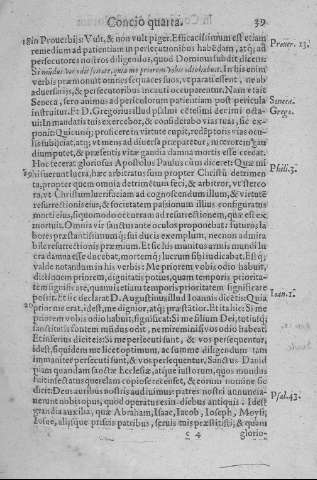 Concio quarta. 39
in Prouerbijs: Vult, & non vult piger. Efficacissimum est etiam
remedium ad patientiam in persecutionibus habẽdam, atq; ad
persecutores nostros diligendos, quod Dominus subdit dicens:
Si mũdus vos odit scitote, quia me priorem vobis odio habuit. In his enim
verbis præmonuit omnes sequaces suos, vt parati essent, ne ab
aduersarijs, & persecutoribus incauti occuparentur. Nam vt ait
Seneca, sero animus ad periculorum patientiam post pericula
instruitur. Et D. Gregorius illud psalmi
In mandatis tuis exercebor, & considerabo vias tuas, sic ex-
ponit:
dium putet, & præsentis vitæ gaudia damna mortis esse credat.
Hoc
hi fuerunt lucra, hæc arbitratus sum propter Christũ detrimen-
ta, propter quem omnia detrimentum feci, & arbitror, vt sterco-
ra, vt Christum lucrifaciam ad cognoscendum illum, & virtutẽ
resurrectionis eius, & societatem passionum illius configuratus
morti eius, si quo modo occurram ad resurrectionem, quæ est ex
mortuis. Omnia vir sanctus ante oculos proponebat: futuros la-
bores præstantissimumq; sui ducis exemplum, necnon admira
bile resurrectionis præmium. Et sic his munitus armis mundi lu
cra damna esse ducebat, mortemq; lucrum sibi iudicabat. Estq;
valde notandum in his verbis: Me priorem vobis odio habuit,
dictionem priorem, dignitatis potius, quam temporis priorita-
tem significare, quamuis etiam temporis prioritatem significare
possit. Et sic declarat D. Augustinus illud Ioannis dicẽtis: Quia
prior me erat, idest, me dignior, atq; præstantior. Et ita hic: Si me
priorem vobis odio habuit, significat: Si me filium Dei, totiusq;
sanctitatis fontem mũdus odit, ne miremini si vos odio habeat.
Et inferius dicit eis: Si me persecuti sunt, & vos persequentur,
idest, si quidem me licet optimum, ac summe diligendum tam
immaniter persecuti sunt, & vos persequentur. Sanctus Dauid
piam quandam sanctæ Ecclesiæ, atque iustorum, quos mundus
fuit insectatus querelam copiose recenset, & eorum nomine sic
dicit: Deus auribus nostris audiuimus: patres nostri annuncia-
uerunt nobis opus, quod operatus es in diebus antiquis. Idest
grandia auxilia, quæ Abraham, Isaac, Iacob, Ioseph, Moysi,
Iosue, alijsque priscis patribus, seruis tuis præstitisti, & quam
c 4 glorio-
Prouer. 13.
Seneca.
Grego.
Phili. 3.
Ioan. 1.
Psal. 43.